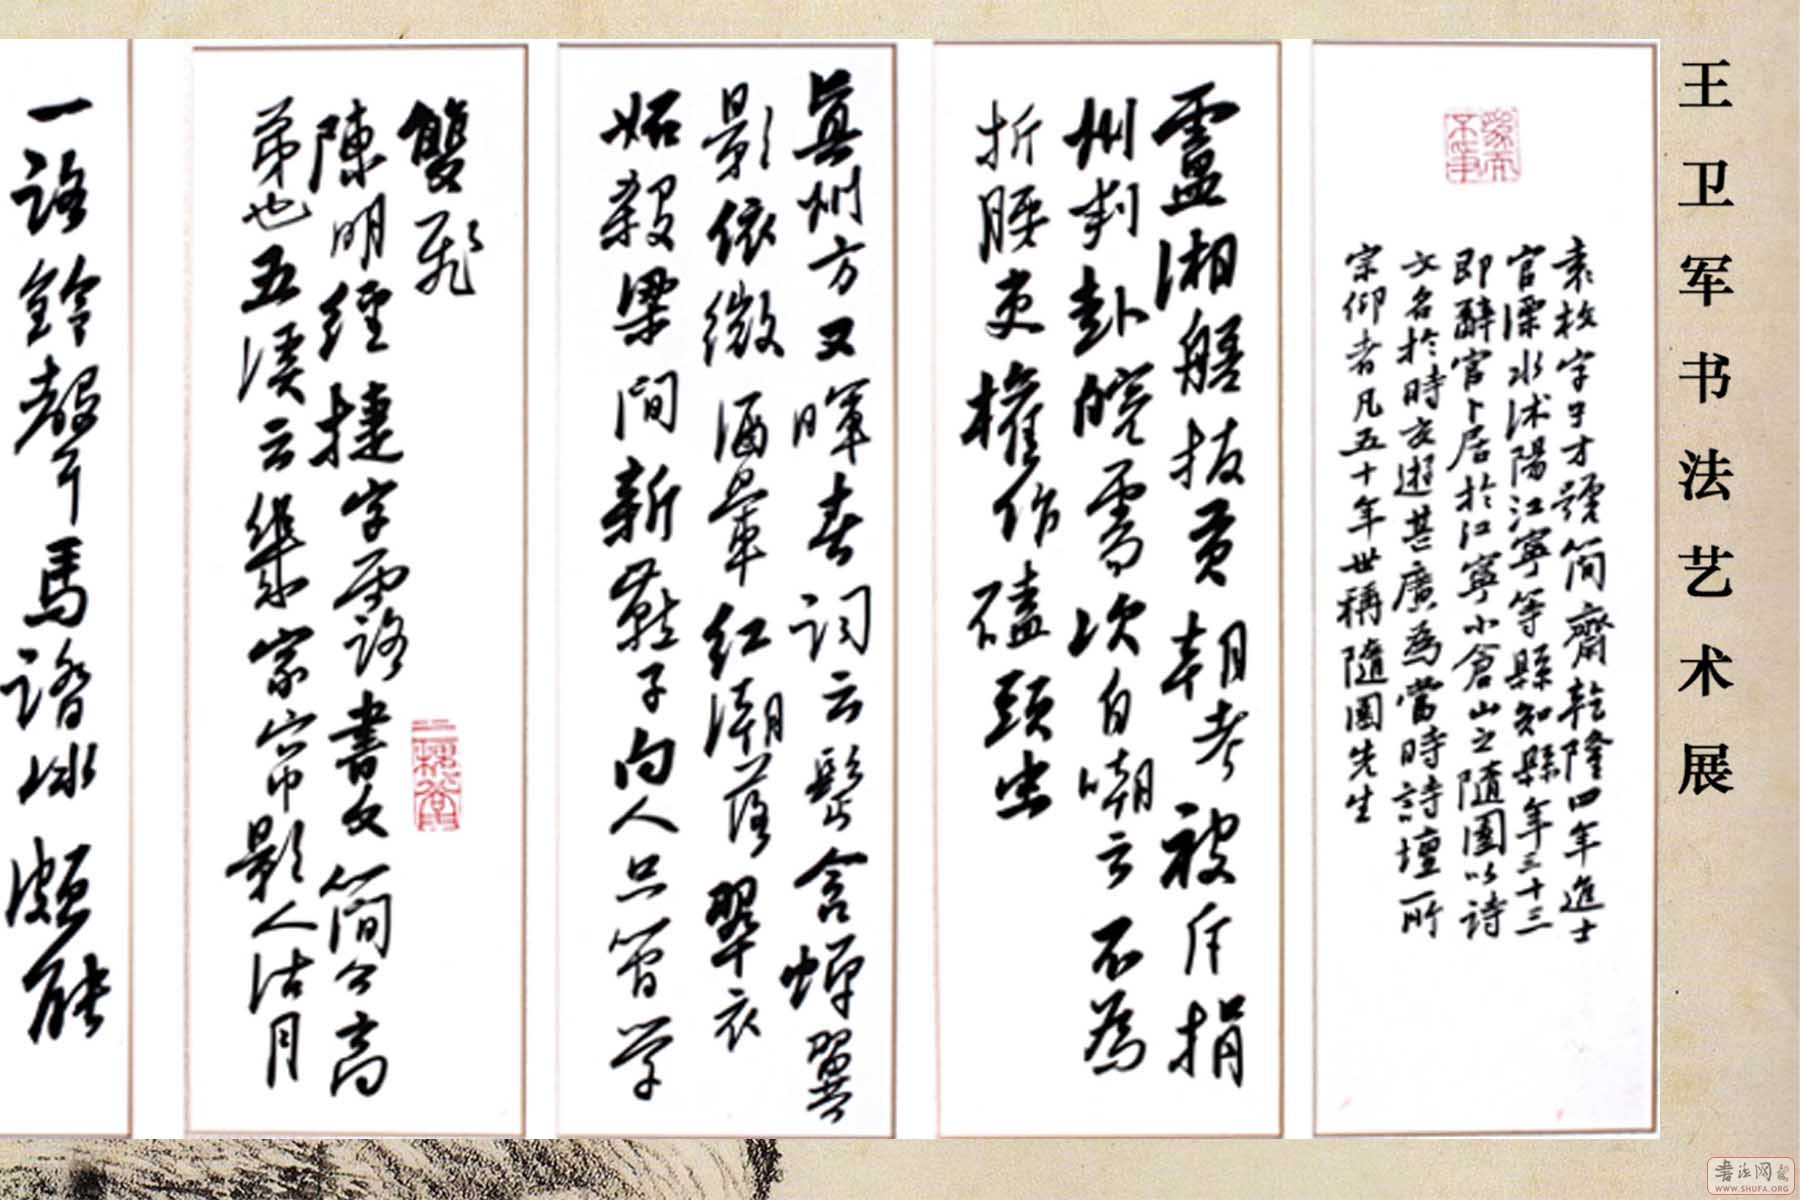 王卫军书法艺术展
袁枚字子才號简齋乾隆四年進士
官溧水沭陽江寧等縣知縣年三十三
即辭官卜居於江寧小倉山之隨園以詩
文名於時交遊甚廣為當時詩壇所
宗仰者凡五十年世稱隨園先生
盧湘艖拔貢朝考被斥捐
州判赴皖需次自嘲云不為
折腰吏權作磕頭虫
真州方又暉春词云髩含蟬翼
影依微酒暈红潮落翠衣
妬殺梁间新燕子向人只管学
雙飛
陳明經捷字雨路書文简公高
弟也五溪云集家帘影人沽月
一路鈴聲馬踏冰頗能
書法网
WWW.SHUFA.ORG